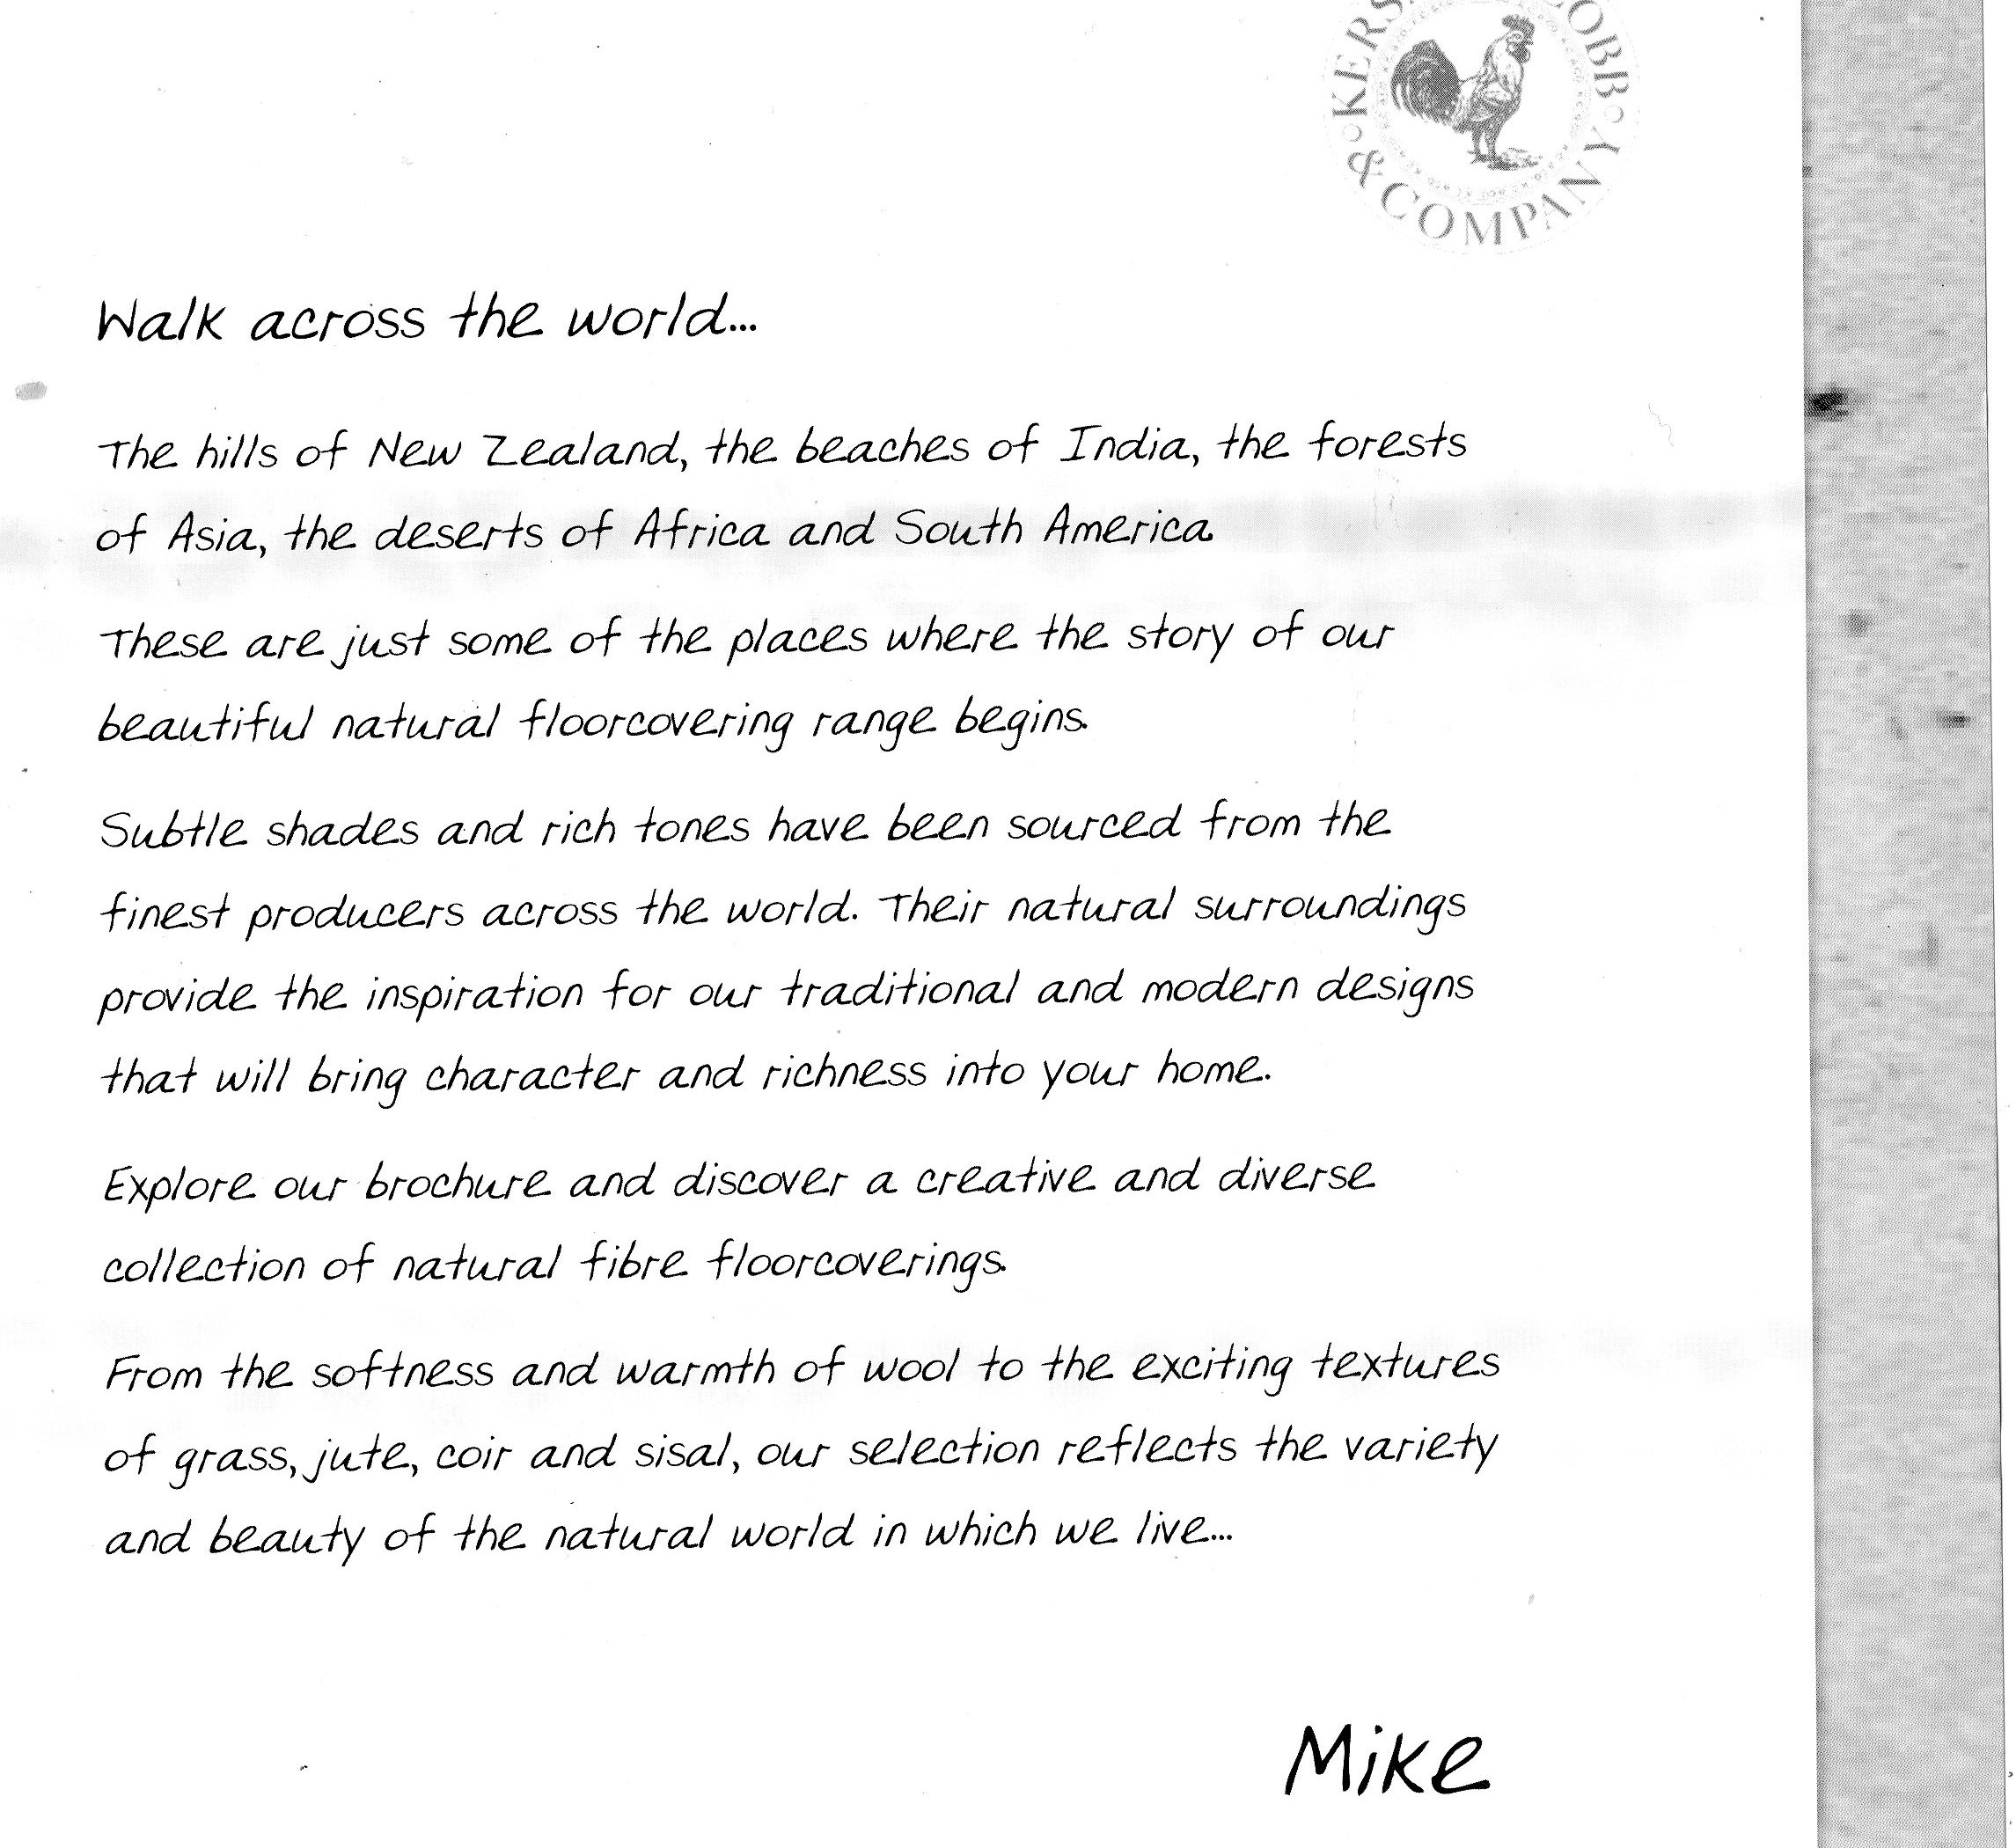 & COMPANY
Walk across the world...
The hills of New Zealand, the beaches of India, the forests
of Asia, the deserts of Africa and South America.
These are just some of the places where the story of our
beautiful natural floorcovering range begins.
Subtle shades and rich tones have been sourced from the
finest producers across the world. Their natural surroundings
provide the inspiration for our traditional and modern designs
that will bring character and richness into your home.
Explore our brochure and discover a creative and diverse
collection of natural fibre floorcoverings.
From the softness and warmth of wool to the exciting textures
of grass, jute, coir and sisal, our selection reflects the variety
and beauty of the natural world in which we live...
Mike